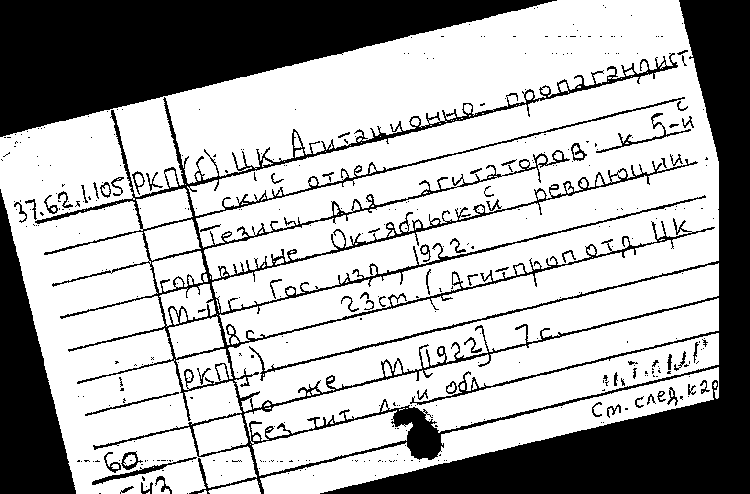 37.62.1.105 РКП(б). ЦК. Агитационно-пропагандист-
ский отдел.
Тезисы для агитаторов к 5-й
годовщине Октябрьской революции.
М.-Пг., Гос. изд., 1922.
8с. 23см. (Агитпропотд. ЦК
РКП(б).
То же. М., [1922]. 7с.
Без тит. л. и обл.
См. след. к-ар
60
-43